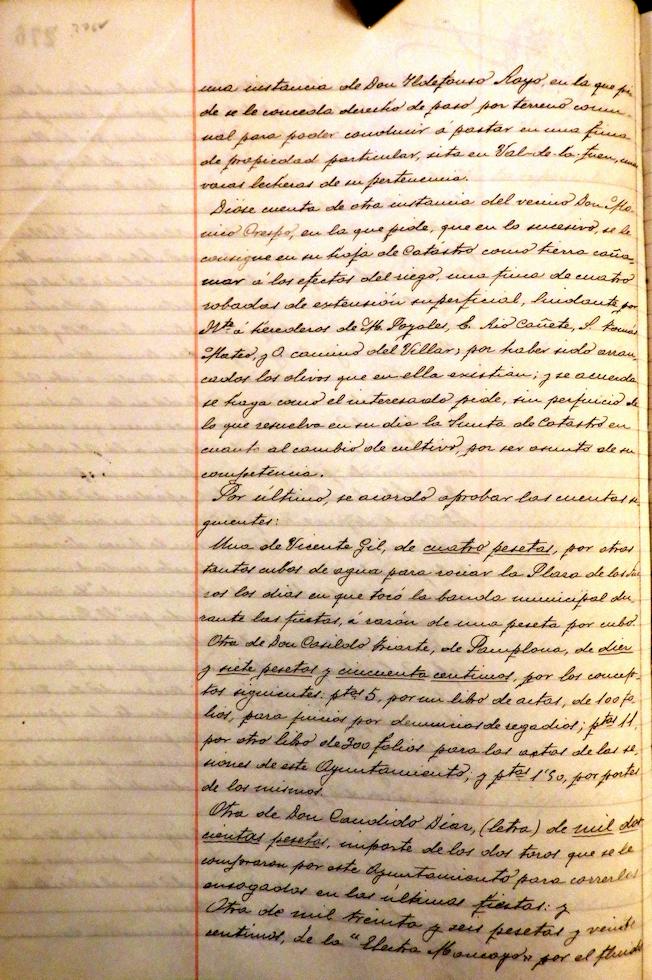 una instancia de Don Ildefonso Rayo, en la que pi-
de se le conceda derecho de paso por terreno comu-
nal para poder conducir á pastar en una finca
de propiedad particular, sita en Val-de-la-fuen, unas
vacas lecheras de su pertenencia.
Dióse cuenta de otra instancia del vecino Don Mó-
nico Crespo, en la que pide, que en lo sucesivo, se le
consigne en su hoja de Catástro como tierra caña-
mar á los efectos del riego, una finca de cuatro
robadas de extensión superficial, lindante por
Nte á herederos de M. Poyales, E. Rio Cañete, S. Tomás
Mateo, y O. camino del Villar; por haber sido arran-
cados los olivos que en ella existian; y se acuerda
se haga como el interesado pide, sin perjuicio de
lo que resuelva en su dia la Junta de Catástro en
cuanto al cambio de cultivo, por ser asunto de su
competencia.
Por último, se acordó aprobar las cuentas si-
guientes:
Una de Vicente Gil, de cuatro pesetas, por otros
tantos cubos de agua para rociar la Plaza de los Fue-
ros los dias en que tocó la banda municipal du-
rante las fiestas, á razón de una peseta por cubo.
Otra de Don Casildo Iriarte, de Pamplona, de diez
y siete pesetas y cincuenta centimos, por los concep-
tos siguientes: ptas 5, por un libro de actas, de 100 fo-
lios, para juicios por denuncias de regadios; ptas 11,
por otro libro de 300 folios para las actas de las se-
siones de este Ayuntamiento; y ptas 1'50, por portes
de los mismos.
Otra de Don Candido Diaz, (letra) de mil dos-
cientas pesetas, importe de los dos toros que se le
compraron por este Ayuntamiento para correrlos
ensogados en las últimas fiestas: y
Otra de mil treinta y seis pesetas y veinte
centimos, de la "Electra Moncayo" por el fluido